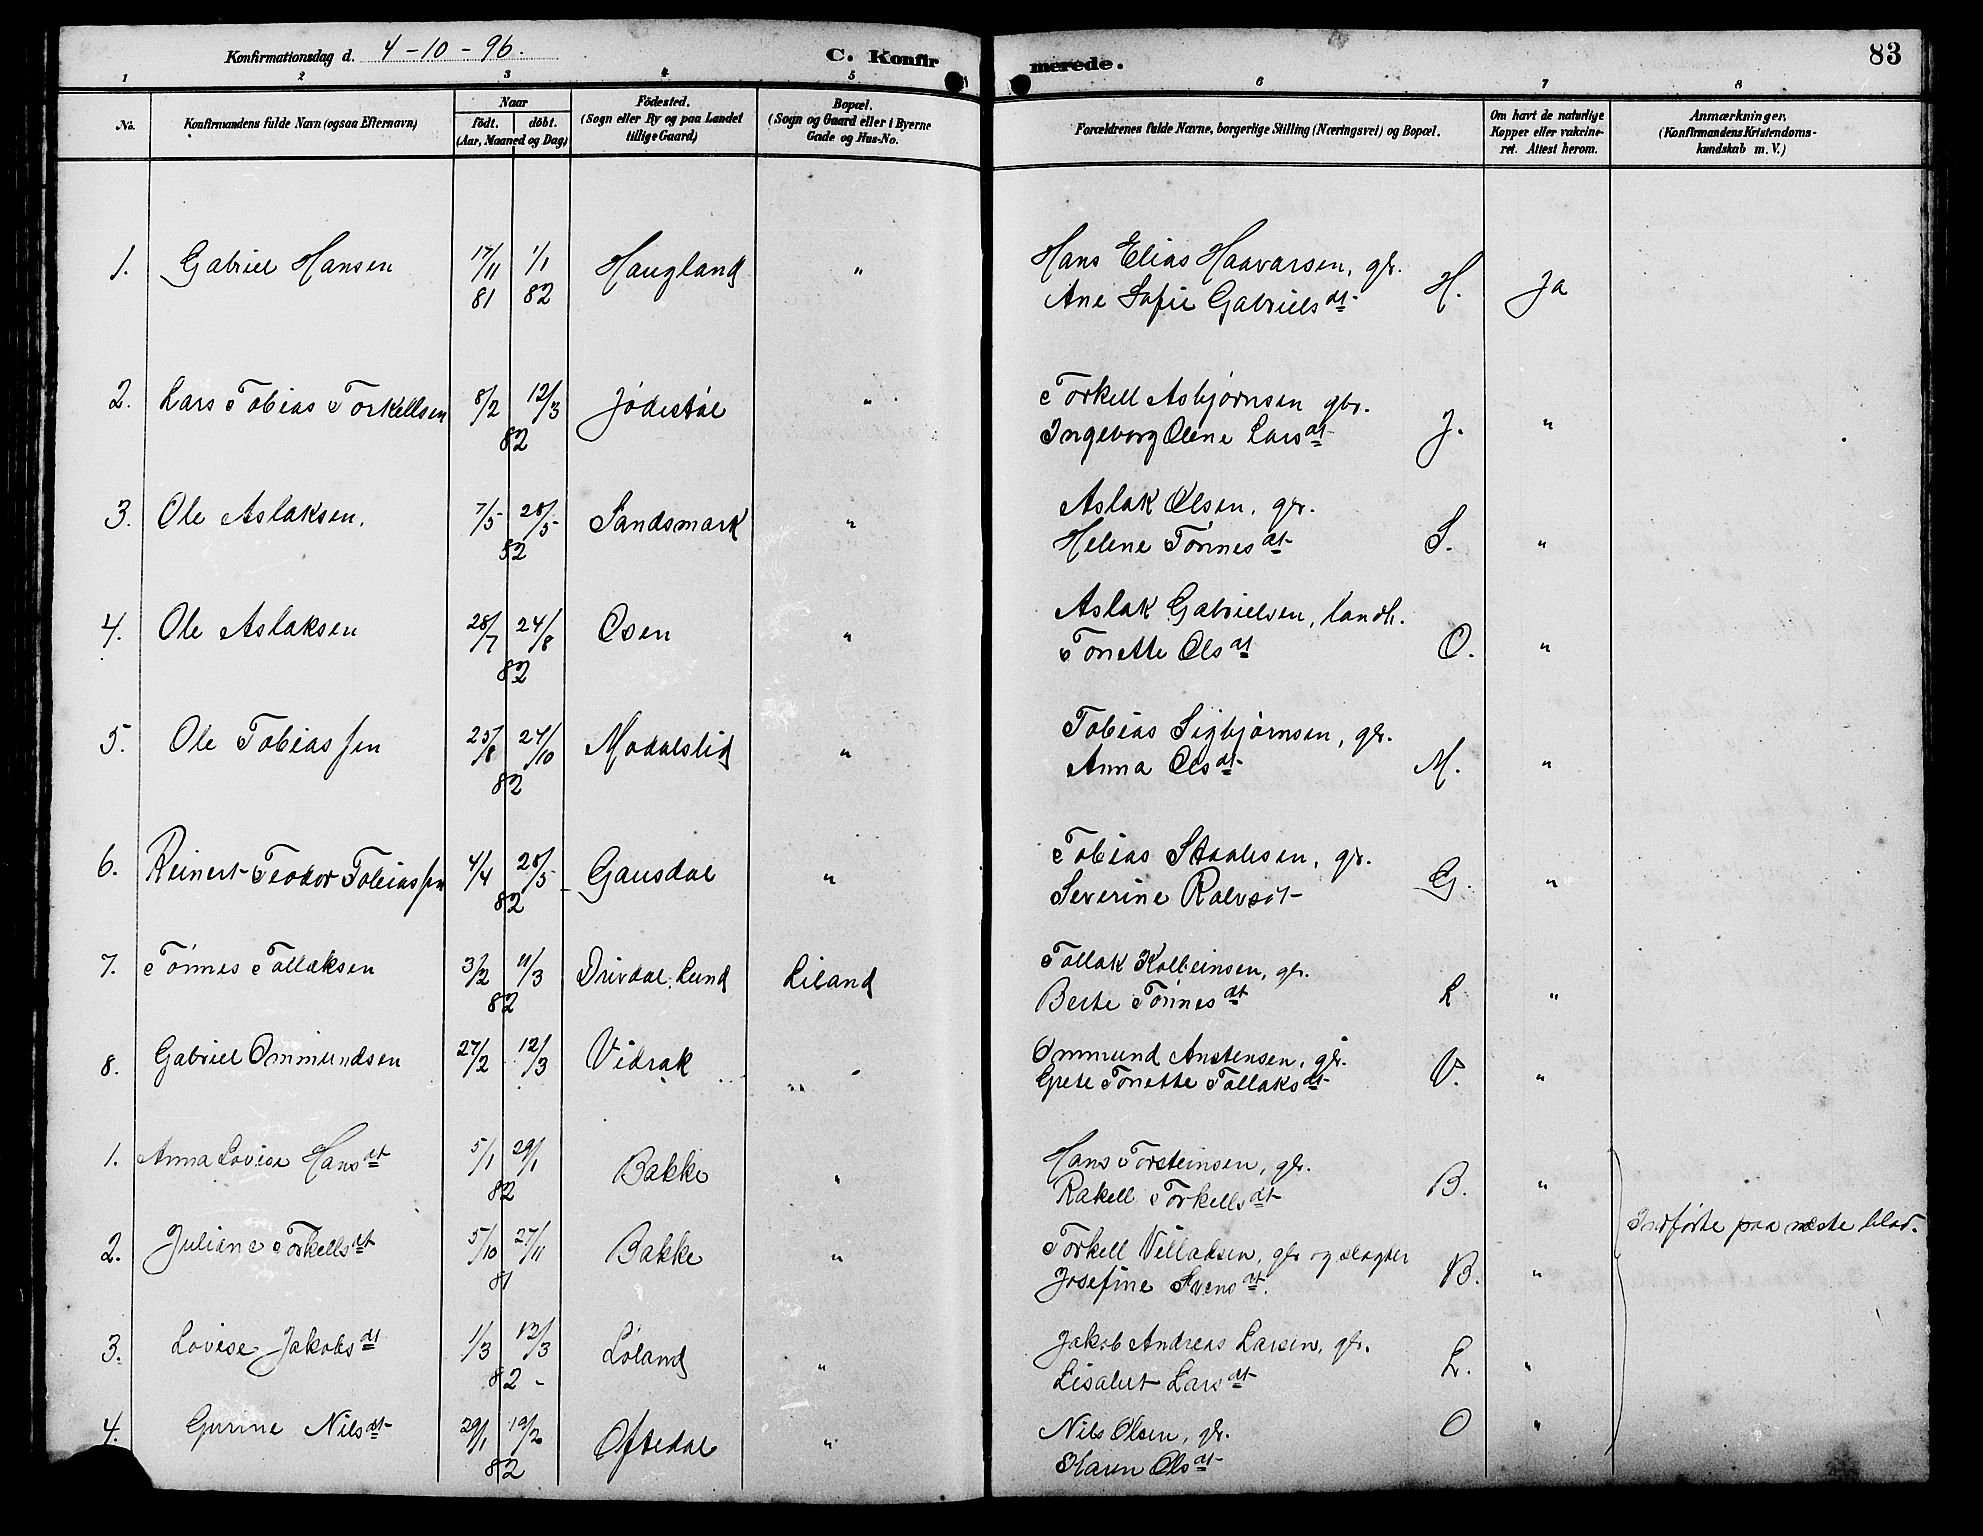 Konfirmationsdag d. 4-10-96.
C. Konfirmerede.
83
1 2 3 4 5 6 7 8
No.
Konfirmandens fulde Navn (ogsaa Efternavn)
Naar
födt. döbt.
(Aar, Maaned og Dag)
Födested.
(Sogn eller By og paa Landet
tillige Gaard)
Bopæl.
(Sogn og Gaard eller i Byerne
Gade og Hus-No.
Forældrenes fulde Navne, borgerlige Stilling (Næringsvei) og Bopæl.
Om havt de naturlige
Kopper eller vakcine-
ret. Attest herom.
Anmærkninger,
(Konfirmandens Kristendoms-
kundskab m. V.)
1. Gabriel Hansen 17/11 81 1/1 82 Haugland " Hans Elias Haavarsen, gbr.
Ane Sofie Gabrielsdt H. Ja
2. Lars Tobias Torkellsen 8/2 12/3 82 Jödestöl " Torkell Asbjørnsen gbr.
Ingeborg Olene Larsdt J. "
3. Ole Aslaksen. 7/5 28/5 82 Sandsmark " Aslak Olsen, gbr.
Helene Tönnesdt S. "
4. Ole Aslaksen 28/7 24/8 82 Osen " Aslak Gabrielsen, landh.
Tonette Olsdt O. "
5. Ole Tobiassen 25/8 27/10 82 Modalslid " Tobias Sigbjørnsen, gbr.
Anna Olsdt M. "
6. Reinert Teodor Tobiassen 4/4 28/5 82 Gausdal " Tobias Staalesen, gbr.
Severine Ralvsdt G. "
7. Tönnes Tollaksen 3/2 11/3 82 Drivdal, Lund Liland Tollak Kolbeinsen, gbr.
Berte Tönnesdt L "
8. Gabriel Ommundsen 27/2 12/3 Vidrak " Ommund Anstensen, gbr.
Grete Tonette Tollaksdt V. "
1. Anna Lovise Hansdt 5/1 29/1 82 Bakke " Hans Torsteinsen, gbr.
Rakell Torkellsdt B. "
2. Juliane Torkellsdt 5/10 27/11 81 Bakke " Torkell Villaksen, gbr og slagter
Josefine Svensdt. B. "
Indførte paa næste blad.
3. Lovise Jakobsdt 1/3 12/3 82 Löland " Jakob Andreas Larsen, gbr.
Lisabet Larsdt L. "
4. Gurine Nilsdt 29/1 19/2 82 Oftedal " Nils Olsen, gbr.
Karen Olsdt O "